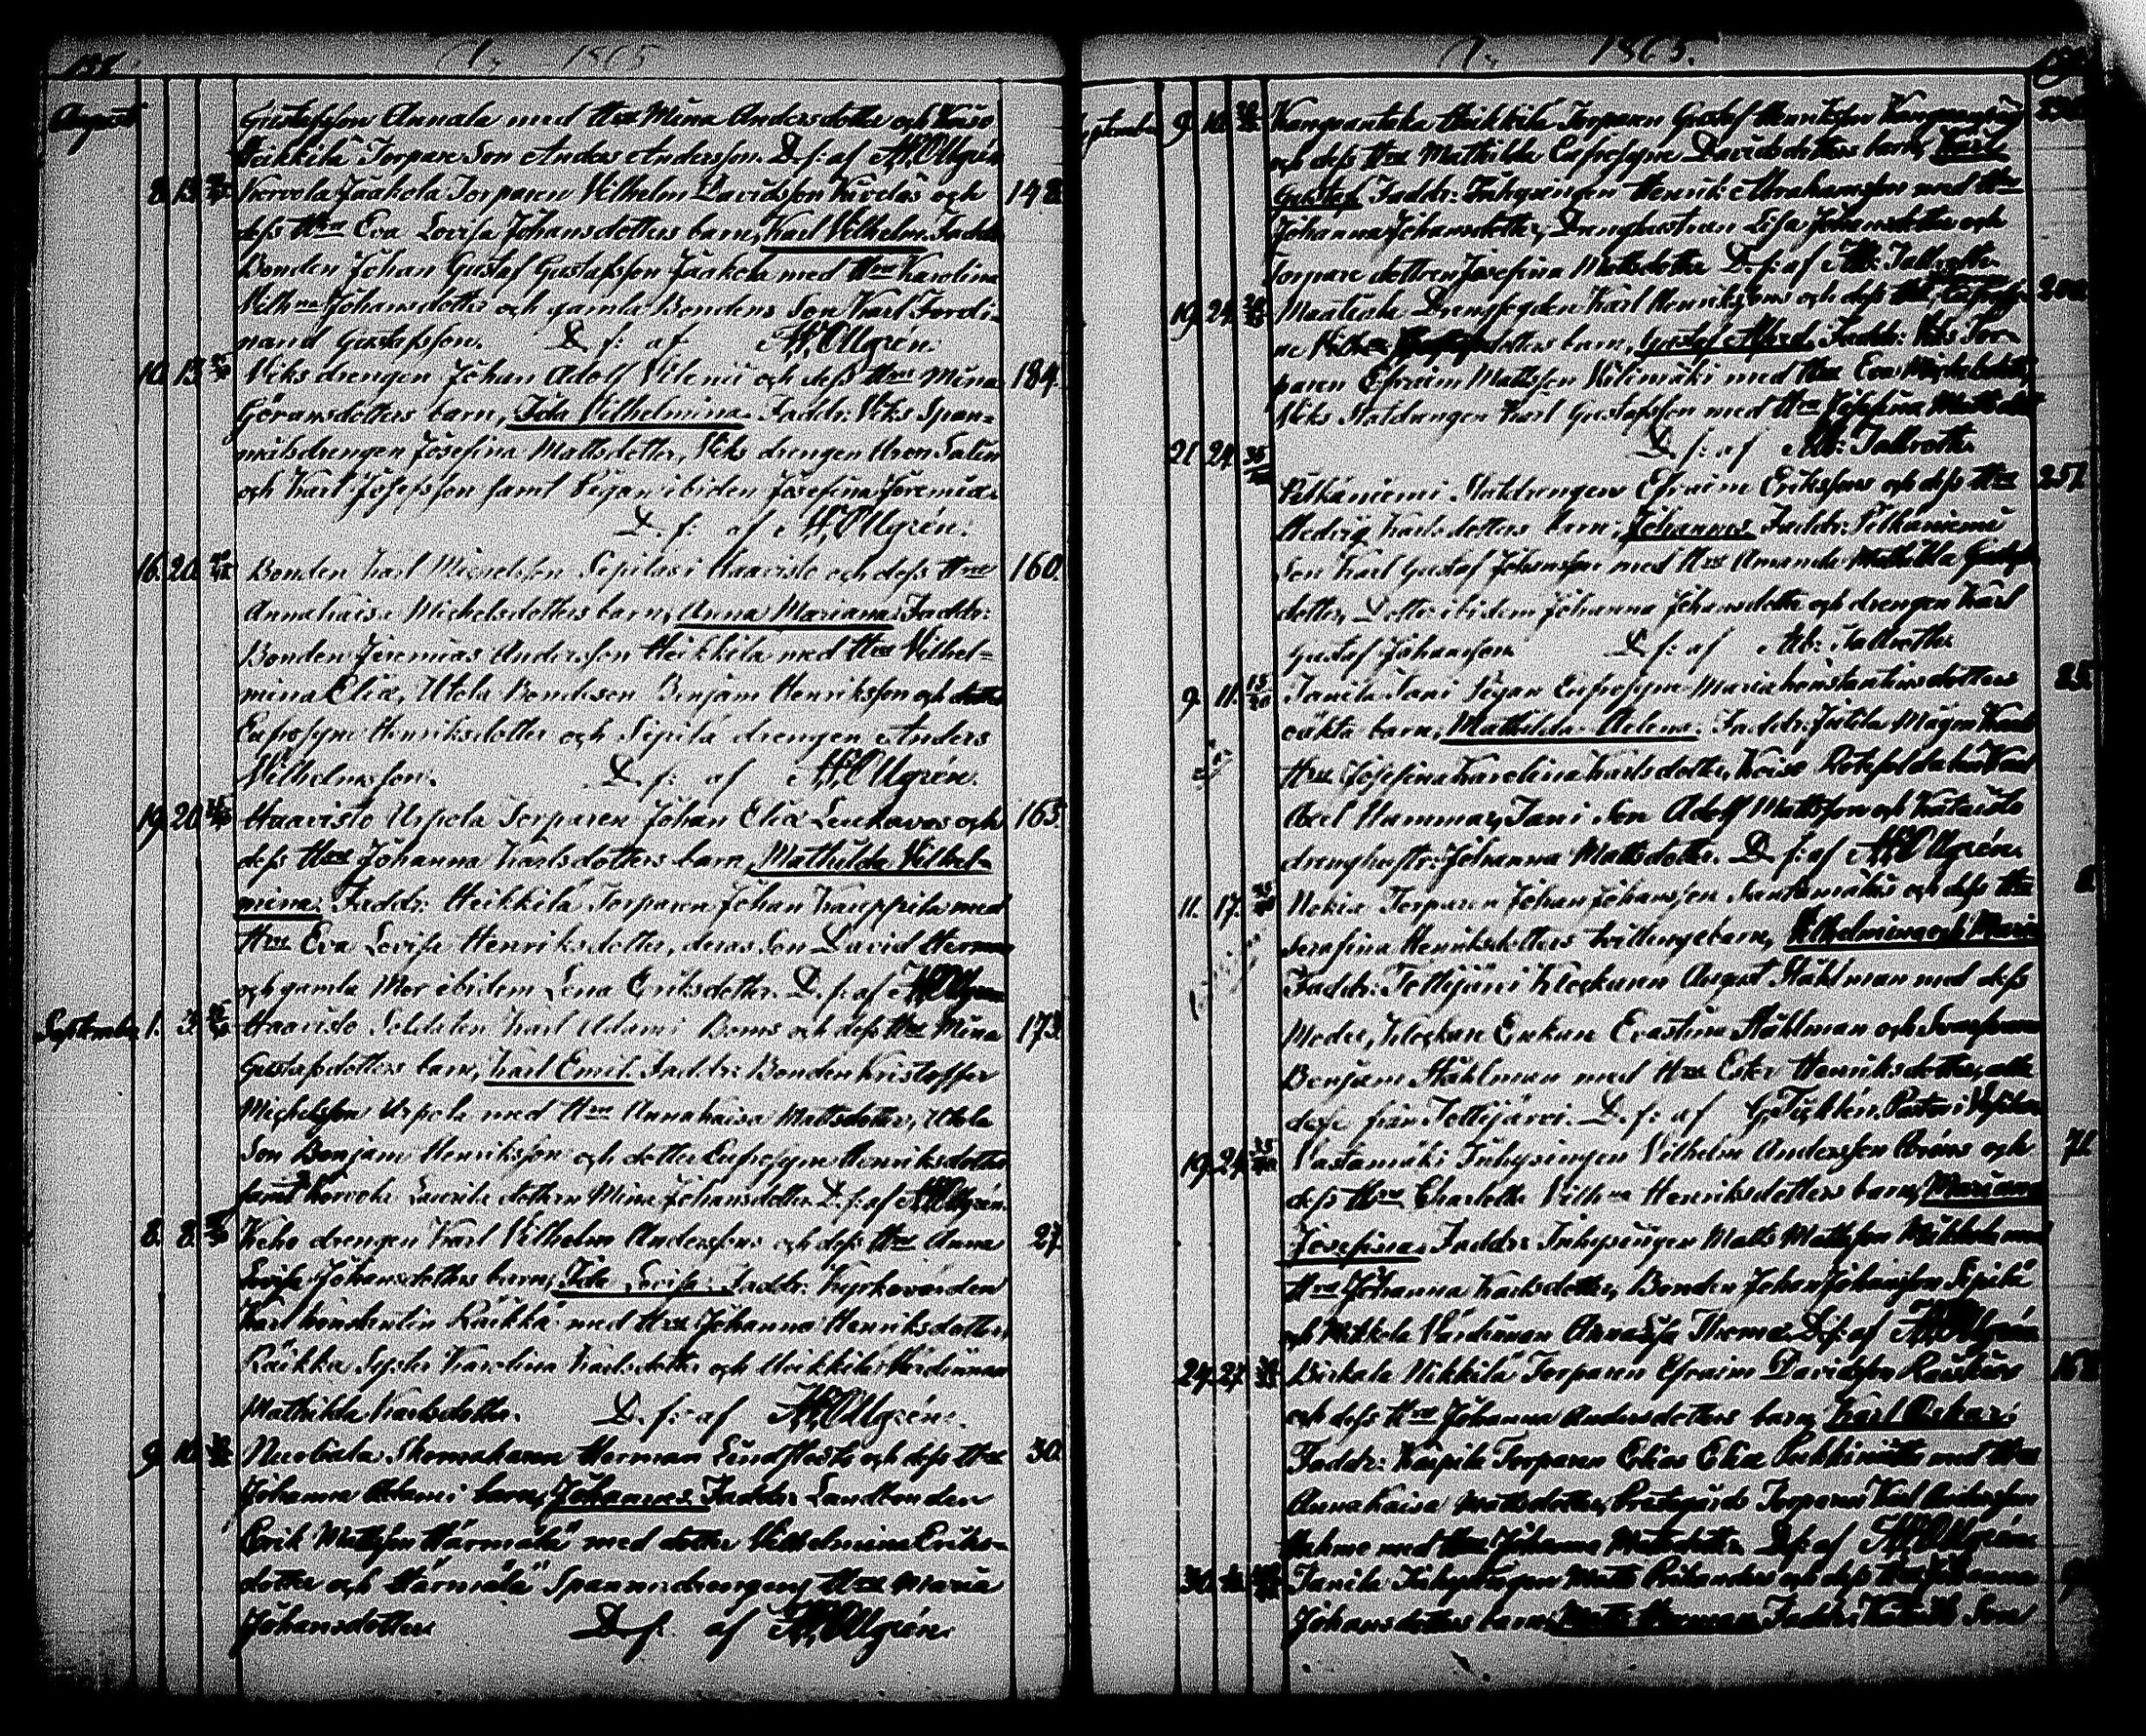 År 1865
August Gustafsson Annala med Hru Mina Andersdotter och Knso
Heikkilä Torpare Son Anders Andersson. D. f: af AW Ollgrén
8. 13. Korvola Jaakola Torparen Vilhelm Davidsson Kivelás och 148.
dess Hru Eva Lovisa Johansdotters barn, Karl Vilhelm. Faddr:
Bonden Johan Gustaf Gustafsson Jaakola med Hru Karolina
Vilhna Johansdotter och gamla Bondens Son Karl Ferdi-
nand Gustafsson. D. f: af Ollgrén.
10. 13. Viks drengen Johan Adolf Vilenii och dess Hru Mina 184.
Göransdotters barn, Ida Vilhelmina. Faddr: Viks Span-
målsdrengen Josefina Mattsdotter, Viks drengen Aron Salin
och Karl Josefsson samt Pigan ibidem Josefina Jeremia.
D. f: af Ollgrén.
16. 20. Bonden Karl Michelsson Sipilas i Haavisto och dess Hru 160.
Annakaisa Michelsdotters barn, Anna Mariana. Faddr:
Bonden Jeremias Andersson Heikkilä med Hru Vilhel-
mina Elia, Utola Bondeson Benjam Henriksson och dotter
Eufrosyne Henriksdotter och Sipilä drengen Anders
Vilhelmsson. D. f: af Ollgrén.
19. 20. Haavisto Urpola Torparen Johan Elia Leukavas och 165.
dess Hru Johanna Karlsdotters barn, Mathilda Vilhel-
mina. Faddr: Heikkilä Torparen Johan Kauppila med
Hru Eva Lovisa Henriksdotter, deras Son David Herman
och gamla Mor ibidem Lena Eriksdotter. D. f: af Ollgrén
September 1. 3. Haavisto Soldaten Karl Adami Boms och dess Hru Mina 173.
Gustafsdotters barn, Karl Emil. Faddr: Bonden Kristoffer
Michelsson Urpola med Hru Annakaisa Mattsdotter, Utola
Son Benjam Henriksson och dotter Eufrosyne Henriksdotter
samt Korvola Laurila dottren Mina Johansdotter. D. f: af Ollgrén.
8. 8. Keho drengen Karl Vilhelm Anderssons och dess Hru Anna 27.
Lovisa Johansdotters barn, Ida Lovisa. Faddr: Kyrkovärden
Karl Konstantin Räikkä med Hru Johanna Henriksdotter,
Räikkä Syster Karolina Karlsdotter och Heikkilä Värdinnan
Mathilda Karlsdotter. D. f: af Ollgrén.
9. 10. Nuoliala Skomakaren Herman Lindstedts och dess Hru 30.
Johanna Adami barn, Johannes. Faddr: Landbonden
Erik Mattsson Härmälä med dotter Vilhelmina Eriks-
dotter och Härmälä Spannmdrengens Hru Maria
Johansdotter D. f: af Ollgrén.
År 1865.
September 9. 10. Heikkilä Torparen Gustaf Henriksson
och dess Hru Mathilda Eufrosyne Davidsdotters barn, Karl
Gustaf. Faddr: Inhysingen Henrik Abrahamsson med Hru
Johanna Johansdotter, Drenghustrun Lisa Johansdotter och
Torpare dottren Josefina Mattsdotter D. f: af Alb: Tallroth.
19. 24. Maatiala Drengen Karl Henrikssons och dess Hru
dotters barn, Gustaf Alfred. Faddr: Viks Tor-
paren Efraim Mattsson Kilimäki med Hru Eva Michelsdotter
Viks Statdrengen Karl Gustafsson med Hru Josefina Mattsdotter
21. 24. D. f: af Alb: Tallroth
Pitkäniemi Statdrengen Efraim Erikssons och dess Hru 257.
Hedvig Karlsdotters barn, Johannes. Faddr: Pitkäniemi
Son Karl Gustaf Johansson med Hru Amanda Mathilda
dotter, Dotter ibidem Johanna Johansdotter och drengen Karl
Gustaf Johansson D. f: af Alb: Tallroth
9. 11. Tanila Tani Pigan Eufrosyne Maria Konstantinsdotters 25.
oäkta barn, Mathilda Helena. Faddr: Jutila Mågen Karl
Hru Josefina Karolina Karlsdotter, Knso
Axel Hammar, Tani Son Adolf Mattsson och Kataisto
drenghustr: Johanna Mattsdotter. D. f: af Ollgrén.
11. 17. Nokia Torparen Johan Johansson Santamäkis och dess Hru
Serafina Henriksdotters tvillingebarn, Vilhelmina och Maria
Faddr: Tottijärvi Klockaren August Ståhlman med dess
Moder, Klockare Enkan Evastina Ståhlman och
Benjam Ståhlman med Hru Ester Henriksdotter, alla
desse från Tottijärvi. D. f: af G. Pastor i
19. 24. Vastamäki Inhysingen Vilhelm Andersson och 71.
dess Hru Charlotta Vilhna Henriksdotters barn, Mariana
Josefina. Faddr: Inhysingen Matts Mattsson Mikkola med
Hru Johanna Karlsdotter, Bonden Johan Johansson Sipilä
och Mikkola Värdinnan Annalisa Thoma. D. f: af Ollgrén
24. 27. Birkala Nikkilä Torparen Efraim Davidsson
och dess Hru Johanna Andersdotters barn, Karl Oskar.
Faddr: Torparen Elias Elia med Hru
Annakaisa Mattsdotter, Prestgårds Torparen Karl Andersson
med Hru Johanna Mattsdotter. D. f: af Ollgrén
30. Tanila Inhysingen Matts och dess Hru Johanna
Johansdotters barn, Matts Herman. Faddr: Son